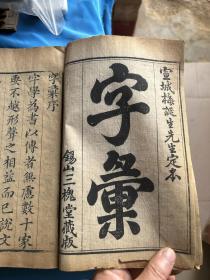 宣城梅誕生先生定本
字彙
錫山二槐堂藏版
字彙序
字學為書以傳者無慮數十家
要不越形聲之相益而已說文